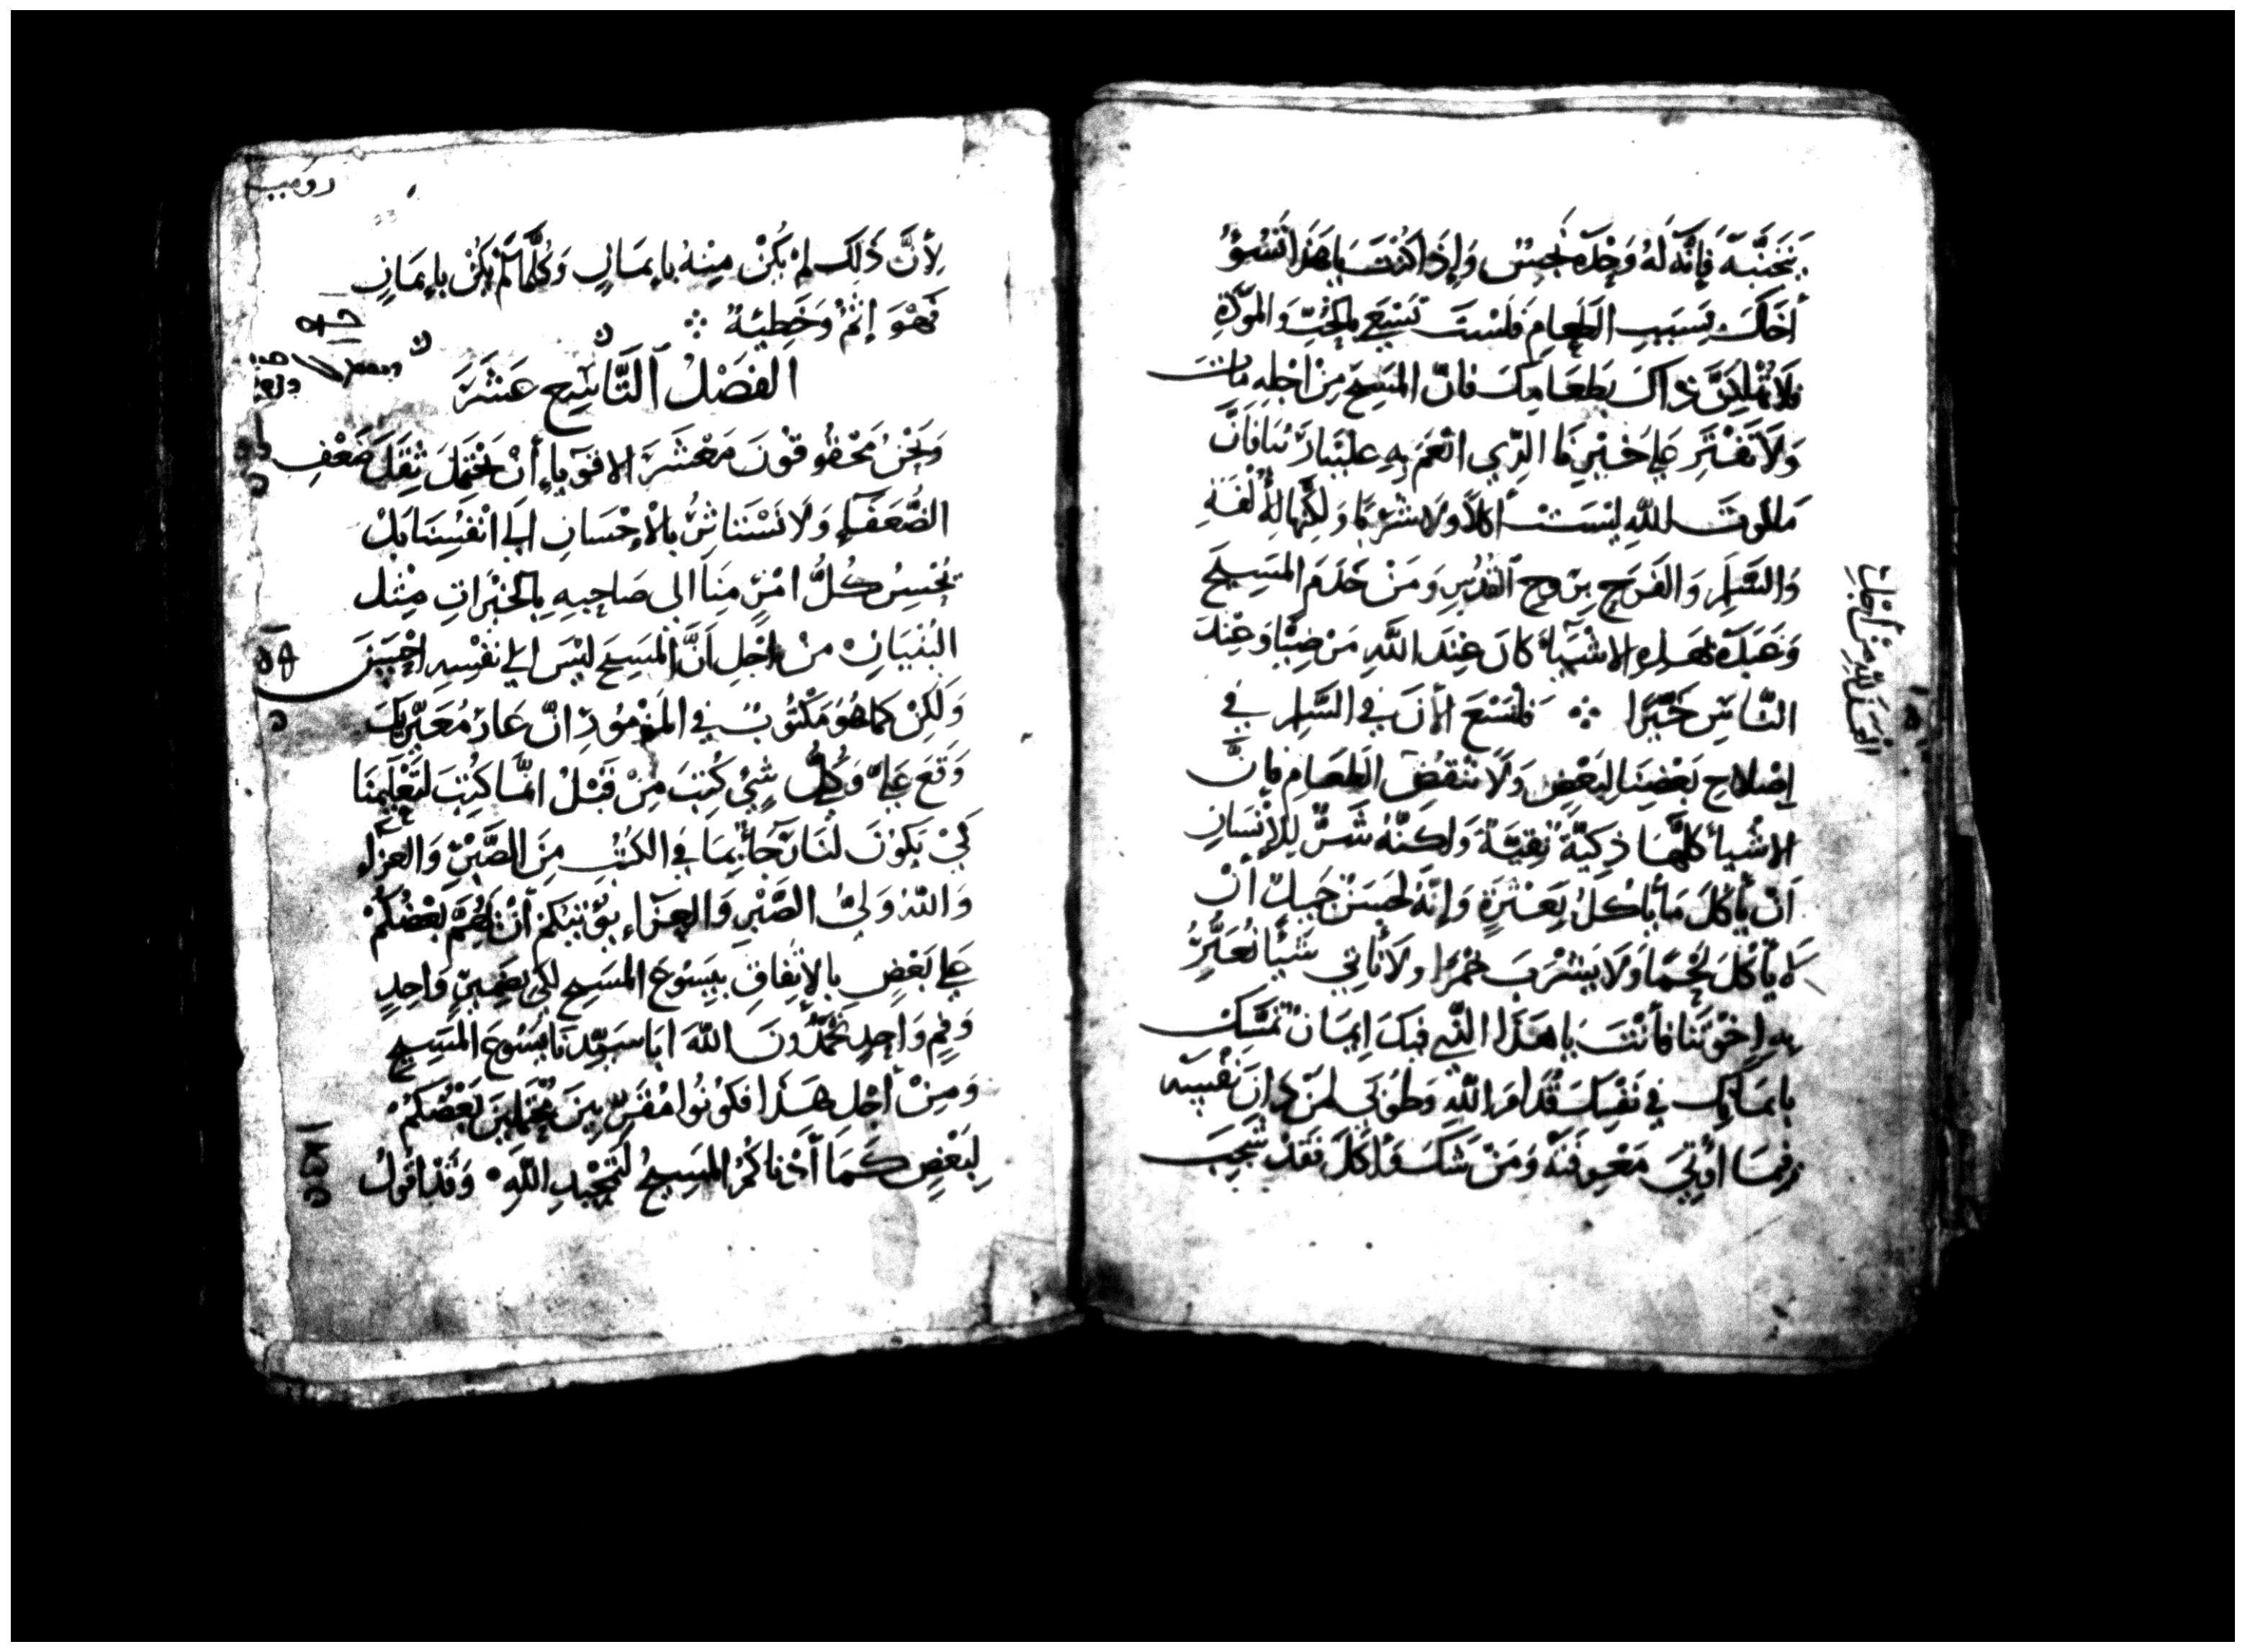 بنجسة فَإِنَّه لَهُ وَحْدَه نَجِسٌ وَإِذَا كُنْتَ يَا هَذَا تَسُوْءُ
أَخَاكَ بِسَبَبِ الطَّعَامِ فَلَسْتَ تَسْعَى بالحُبِّ وَالمَوَدَّةِ
فَلَا تُهْلِكَنَّ ذاكَ بِطَعَامِكَ فَانَّ المَسِيحَ مِنْ اَجْلِهِ مَاتَ
وَلَا تَفْتَرِ عَلَى خَيْرِنَا الَّذِي انْعَمَ بِهِ عَلَيْنَا رَبُّنَا فَانَّ
مَلَكُوتَ اللهِ لَيْسَتْ أَكْلاً وَلَا شُرْبًا وَلَكِنَّهَا الأُلْفَةِ
وَالسَّلَامِ وَالفَرَحِ بِرُوحِ القُدُسِ وَمَنْ خَدَمَ المَسِيحَ
بِهَذِهِ الاشْيَآءِ كَانَ عِنْدَ اللَّهِ مَرْضِيًّا وَعِنْدَ
النَّاسِ خَيِّرًا ܀ فَلْنَسْعَ الأنَ فِي السَّلَامِ فِي
إِصْلَاحِ بَعْضِنَا لِبَعْضٍ وَلَا نَنْقُضُ الطَعَامِ فَانَّ
الاشْيَأ كُلّهَا ذكِيَّةٌ نَقِيَّةٌ وَلَكِنَّهُ شَرٌّ لِلإِنْسَانِ
اَنْ يَأْكُلَ مَا يَأْكُلُ بِعَثْرَةٍ وَإِنَّهُ لَحَسَنٌ جَمِيلٌ أنْ
لَا يَأْكُلَ لَحْمًا وَلَا يَشْرَبَ خَمْرًا وَلَا نَأتِي شَيْأً نُعَثِّرُ
بِهِ إِخْوَتَنَا فَأَنْتَ يَا هَذَا الَّذِي فِيكَ اِيمَانٌ تَمَسَّكْ
بِايمَانِكَ فِي نَفْسِكَ قُدَّامَ اللّهِ وَطُوْبَى لِمَنْ دَانَ نَفْسَه
فِيمَا أُوتِيَ مَعْرِفَتَهُ وَمَنْ شَكَّ وَاَكَلَ فَقَدْ شَجِبَ
لِأَنَّ ذَلِكَ لَمْ يَكُنْ مِنْهُ بِايمَانٍ وَكُلَّمَا لَمْ يَكُنْ بِايمَانٍ
فَهْوَ إِثْمٌ وَخَطِيئَةٌ ܀
الفَصْلُ التَّاسِعِ عَشَرَ
وَنَحْنُ مَحْقُوقُونَ مَعْشَرَ الاقوِيَاءِ أَنْ نَحْتَمِلَ ثِقَلَ ضَعْفِ
الضُّعَفَاءِ وَلَا نَسْتَاثِرُ بِالْإِحْسَانِ الَى انْفُسِنَا بَلْ
يُحْسِنُ كُلُّ امْرِءٍ مِنَّا الى صَاحِبِهِ بالخَيْرَاتِ مِثْل
البُنْيَانِ مِنْ اَجْلِ اَنَّ المَسِيحَ لَيْسَ الى نَفْسِهِ احْسَنَ
وَلَكِنْ كَمَا هُوَ مَكْتُوبٌ فِي المَزْمُورِ انَّ عَارَ مُعَيِّرِيكَ
وَقَعَ عَلَيَّ وَكُلُّ شَيْءٍ كُتِبَ مِنْ قَبْلُ انَّمَا كُتِبَ لِتَعْلِيمِنَا
كَيْ يَكُونَ لَنَا رَجَاءٌ بِمَا فِي الكُتُبِ مِنَ الصَّبْرِ وَالعَزَاءِ
وَاللّهُ وَلِيُّ الصَّبْرِ وَالعَزَاءِ يُؤْتِيكُمْ أَنْ بَعْضُكُمْ
عَلَى بَعْضٍ بِالإِتّفَاقِ بِيَسُوعَ المَسِيحِ لِكَي بِضَمِيرٍ وَاحِدٍ
وَفَمٍ وَاحِدٍ تُمَجِّدُونَ اللّهَ ابَا سَيِّدِنَا يَسُوعَ المَسِيحِ
وَمِنْ أَجْلِ هَذَا فَكُونُوا مُقَرِّبِينَ مُحْتَمِلِينَ بَعْضُكُمْ
لِبَعْضٍ كَمَا أَدْنَاكُمُ المَسِيحُ لِتَمْجِيدِ اللّهِ وَقَدْ اقُولُ